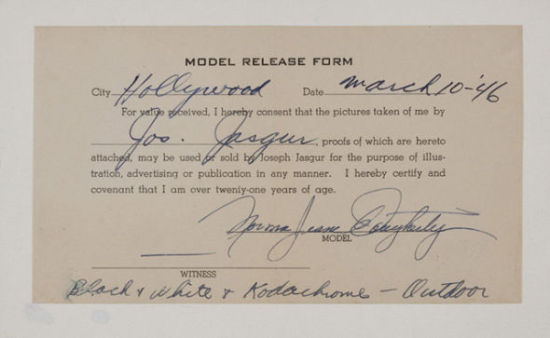 MODEL RELEASE FORM
City Hollywood Date March 10-'46
For value received, I hereby consent that the pictures taken of me by
Jos. Jasgur. proofs of which are hereto
attached, may be used or sold by Joseph Jasgur for the purpose of illus-
tration, advertising or publication in any manner. I hereby certify and
covenant that I am over twenty-one years of age.
Norma Jeane Dougherty
MODEL
WITNESS
Black & White & Kodachrome - Outdoor